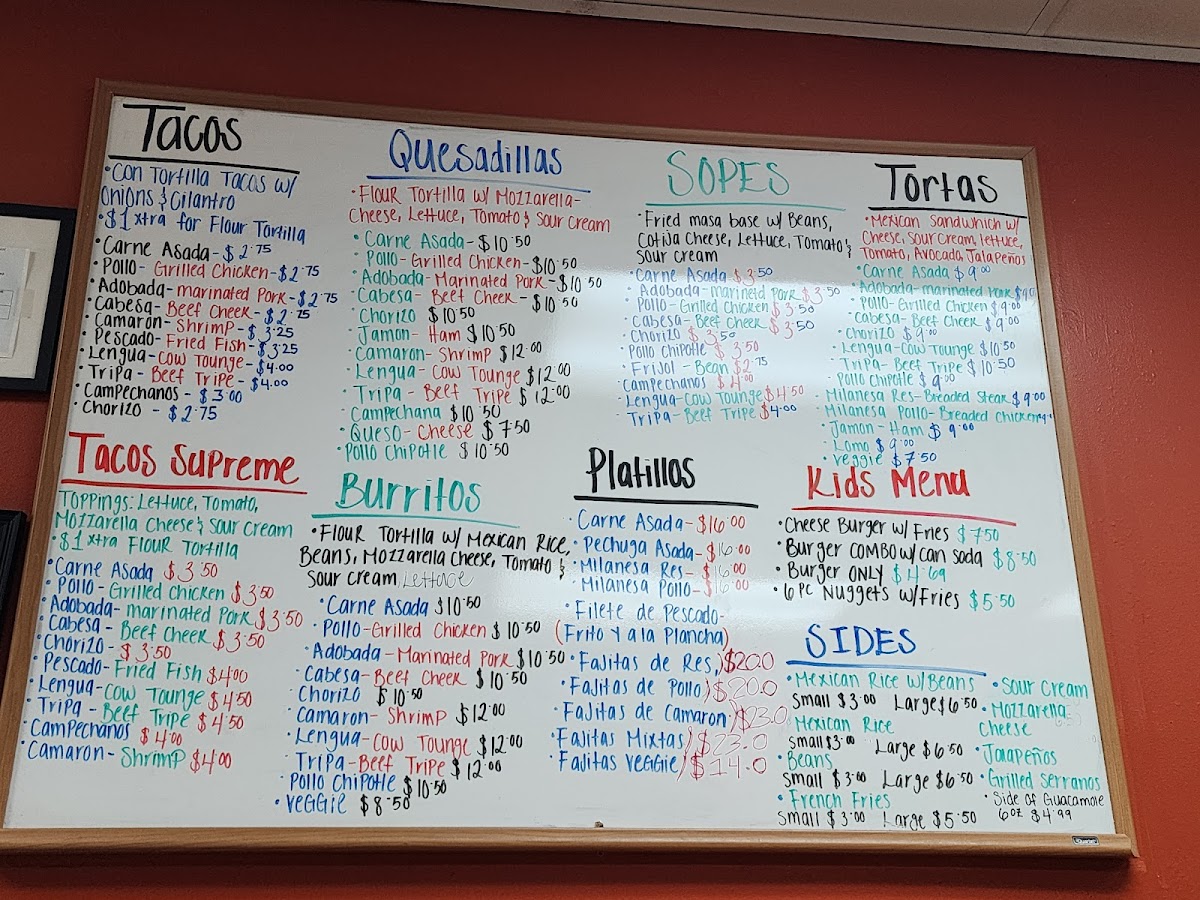 Tacos
• Con Tortilla Tacos w/
Onions & Cilantro
• $1 xtra for Flour Tortilla
• Carne Asada - $2.75
• Pollo - Grilled Chicken - $2.75
Adobada - marinated Pork - $2.75
• Cabesa - Beef Cheek - $2.75
• Camaron - Shrimp - $3.25
• Pescado - Fried Fish - $3.25
• Lengua - Cow Tounge - $4.00
• Tripa - Beef Tripe - $4.00
• Campechanos - $3.00
• Chorizo - $2.75
Quesadillas
• Flour Tortilla w/ Mozzarella-
Cheese, Lettuce, Tomato & Sour Cream
• Carne Asada - $10.50
• Pollo - Grilled Chicken - $10.50
• Adobada - Marinated Pork - $10.50
• Cabesa - Beef Cheek - $10.50
• Chorizo $10.50
• Jamon - Ham $10.50
• Camaron - Shrimp $12.00
• Lengua - Cow Tounge $12.00
• Tripa - Beef Tripe $12.00
• Campechana $10.50
• Queso - Cheese $7.50
• Pollo Chipotle $10.50
SOPES
• Fried masa base w/ Beans,
Cotija Cheese, Lettuce, Tomato &
Sour cream
• Carne Asada $3.50
• Adobada - marinetd Pork $3.50
• Pollo - Grilled Chicken $3.50
• Cabesa - Beef Cheek $3.50
• Chorizo $3.50
• Pollo Chipotle $3.50
• Frijol - Bean $2.75
• Campechanos $4.00
• Lengua - Cow Tounge $4.50
• Tripa - Beef Tripe $4.00
Tortas
• Mexican Sandwhich w/
Cheese, Sour Cream, lettuce,
Tomato, Avocado, Jalapeños
• Carne Asada $9.00
• Adobada - marinated Pork
• Pollo - Grilled Chicken $9.00
• Cabesa - Beef Cheek $9.00
• Chorizo $9.00
• Lengua - Cow Tounge $10.50
• Tripa - Beef Tripe $10.50
• Pollo Chipotle $9.00
• Milanesa Res - Breaded Steak $9.00
• Milanesa Pollo - Breaded Chicken
• Jamon - Ham $9.00
• Lomo $9.00
• veggie $7.50
Tacos Supreme
Toppings: Lettuce, Tomato,
Mozzarella Cheese & Sour Cream
• $1 xtra Flour Tortilla
• Carne Asada $3.50
• Pollo - Grilled Chicken $3.50
• Adobada - marinated Pork $3.50
• Cabesa - Beef Cheek $3.50
Chorizo - $3.50
• Pescado - Fried Fish $4.00
• Lengua - Cow Tounge $4.50
• Tripa - Beef Tripe $4.50
• Campechanos $4.00
• Camaron - Shrimp $4.00
Burritos
• Flour Tortilla w/ Mexican Rice,
Beans, Mozzarella Cheese, Tomato &
Sour cream Lettuce
• Carne Asada $10.50
• Pollo - Grilled Chicken $10.50
• Adobada - Marinated Pork $10.50
• Cabesa - Beef Cheek $10.50
• Chorizo $10.50
• Camaron - Shrimp $12.00
• Lengua - Cow Tounge $12.00
• Tripa - Beef Tripe $12.00
Pollo Chipotle $10.50
• Veggie $8.50
Platillos
• Carne Asada - $16.00
• Pechuga Asada - $16.00
• Milanesa Res - $16.00
• Milanesa Pollo - $16.00
• Filete de Pescado -
(Frito Y a la Plancha)
• Fajitas de Res, ) $20.0
• Fajitas de Pollo ) $20.0
• Fajitas de Camaron ) $23.0
• Fajitas Mixtas ) $23.0
• Fajitas Veggie ) $14.0
Kids Menu
• Cheese Burger w/ Fries $7.50
• Burger COMBO w/ can soda $8.50
• Burger ONLY $4.69
• 6 pc Nuggets w/ Fries $5.50
SIDES
• Mexican Rice w/ Beans
Small $3.00 Large $6.50
• Mexican Rice
Small $3.00 Large $6.50
• Beans
Small $3.00 Large $6.50
• French Fries
Small $3.00 Large $5.50
• Sour Cream
• Mozzarella
Cheese
• Jalapeños
• Grilled Serranos
• Side of Guacamole
6oz $4.99
Quartet